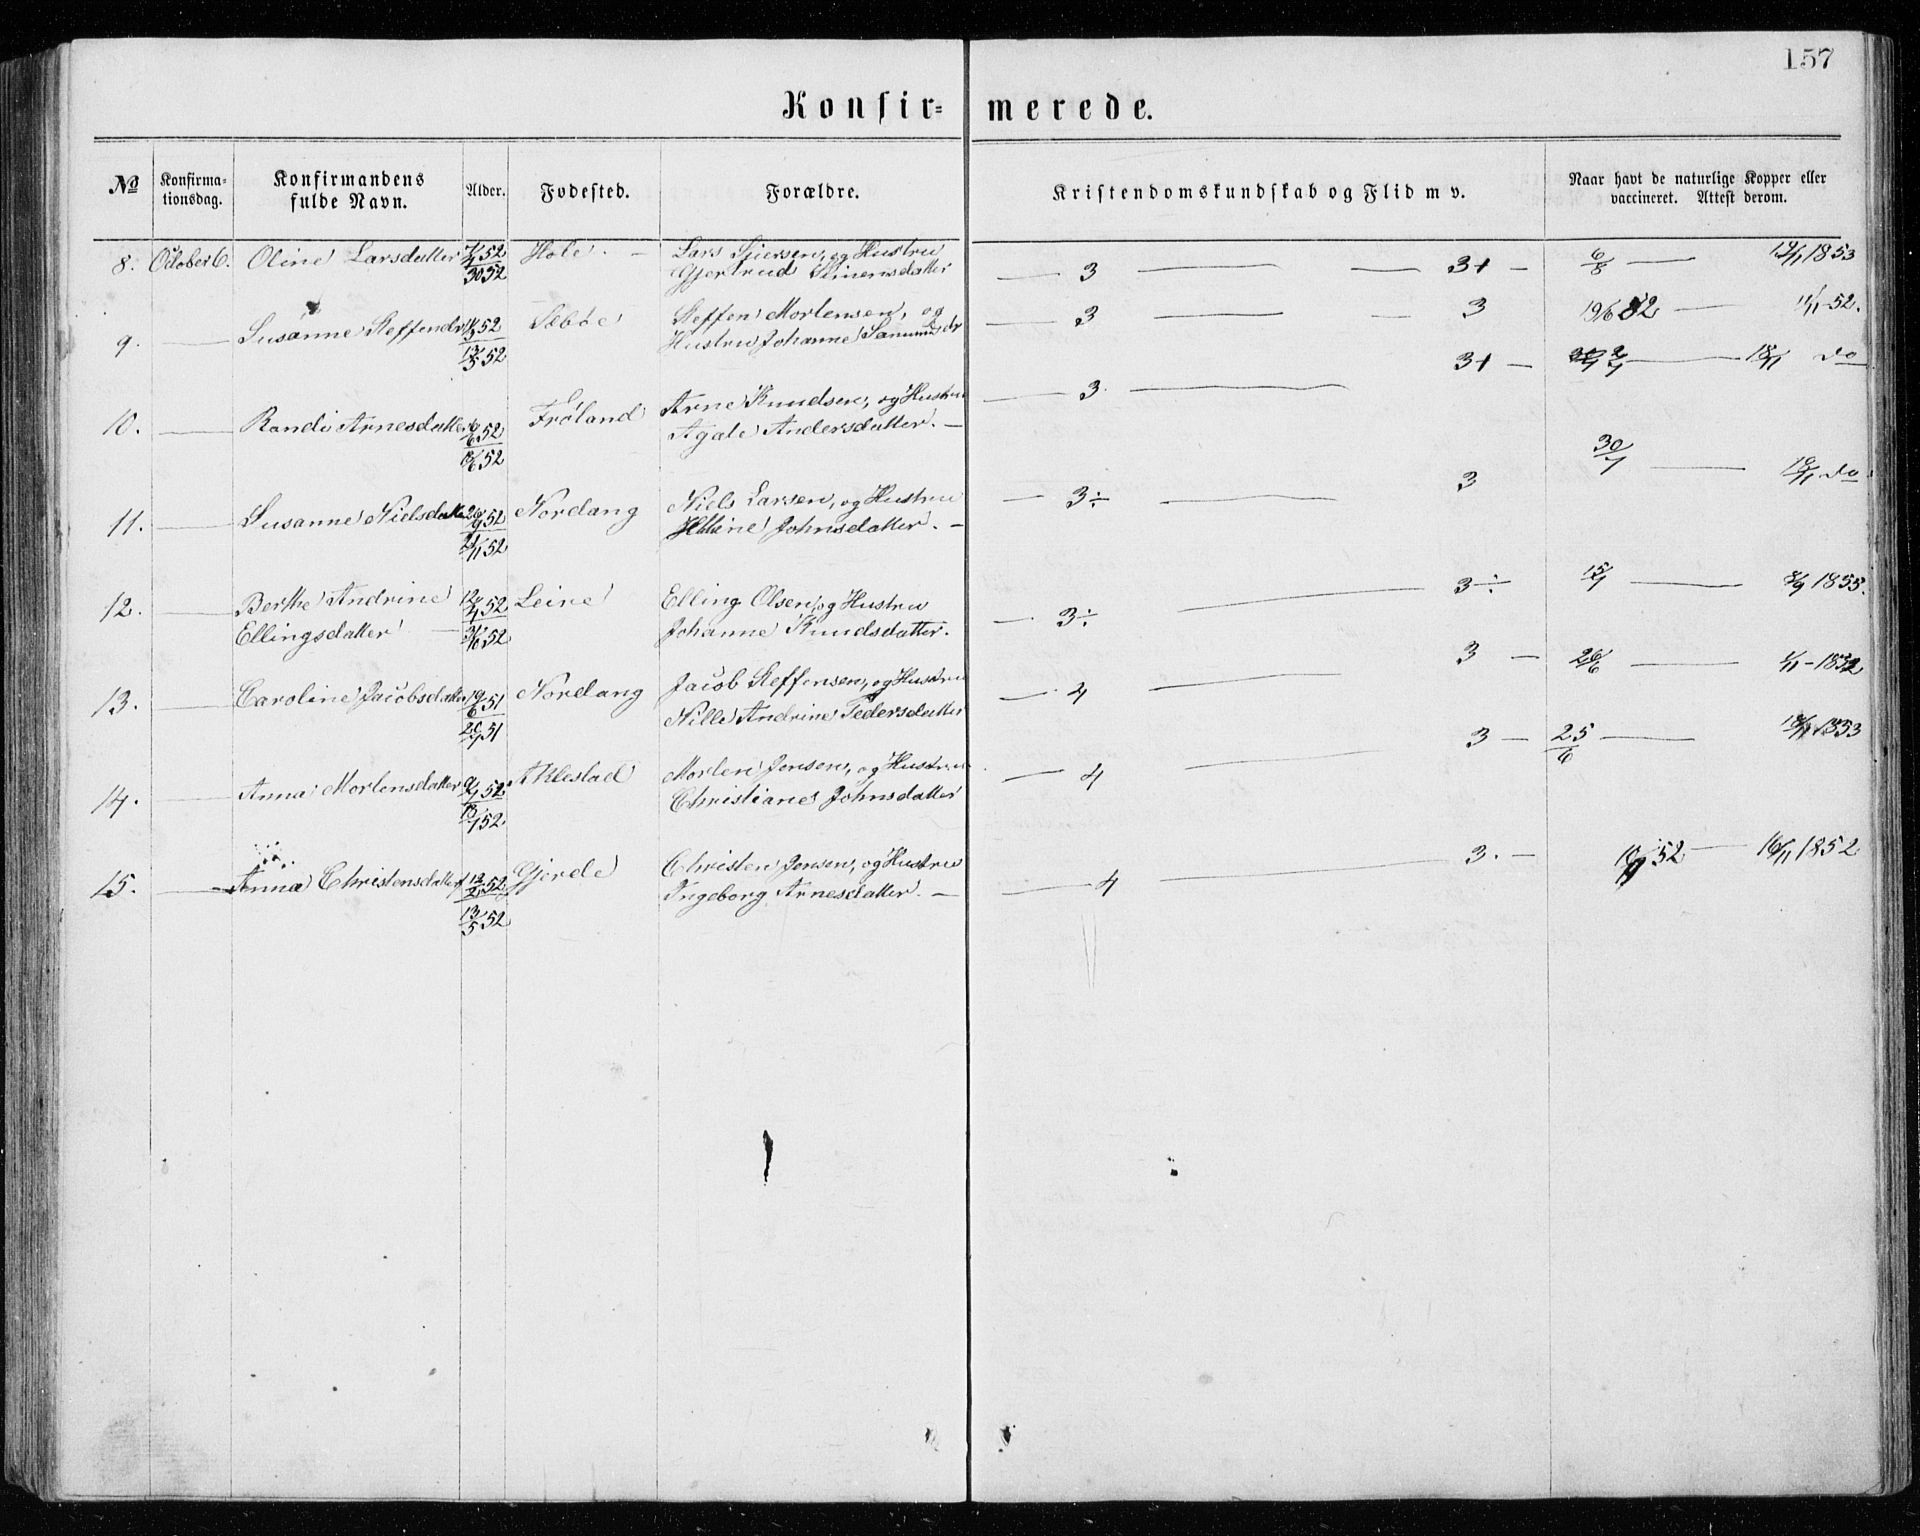 157
Konfir= merede.
No Konfirma-tionsdag. Konfirmandens fulde Navn. Alder. Fødested. Forældre. Kristendomskundskab og Flid m v. Naar havt de naturlige Kopper eller vaccineret. Attest derom.
8. October 6. Oline Larsdatter 52 Hole. Lars og Hustru 3 3+ 6/8 19/1 1853
30 52 Gjertrud
9. Susanne Steffensdr 52 Sæbøe Steffen Mortensen, og 3 3 19/6 52 11/11 52.
13/5 52 Hustru Johanne
10. Randi Arnesdatter 52 Frøland Arne Knudsen, og Hustru 3. 3+ 18/11 do
52 Agate Andersdatter.
11. Susanne Nielsdatter 26/9 52 Nordang Niels Larsen, og Hustru 3÷ 3 30/7 do
52 Johnsdatter.
12. Berthe Andrine 52 Leine Elling Olsen, og Hustru 3÷ 3÷ 15/7 8/9 1855.
Ellingsdatter 52 Johanne Knudsdatter.
13. Caroline Jacobsdatter 19/6 51 Nordang Jacob Steffensen, og Hustru 4 3 26/6 1/11 - 1852
51 Nille Andrine Pedersdatter
14. Anna Mortensdatter 52 Aklestad Morten Jensen, og Hustru 4 3 25/6 1853
52. Christiane Johnsdatter
15. Anna Christensdatter 52 Gjerde Christen Jensen, og Hustru 4 3. 52 16/11 1852
13/5 52 Ingeborg Arnesdatter.